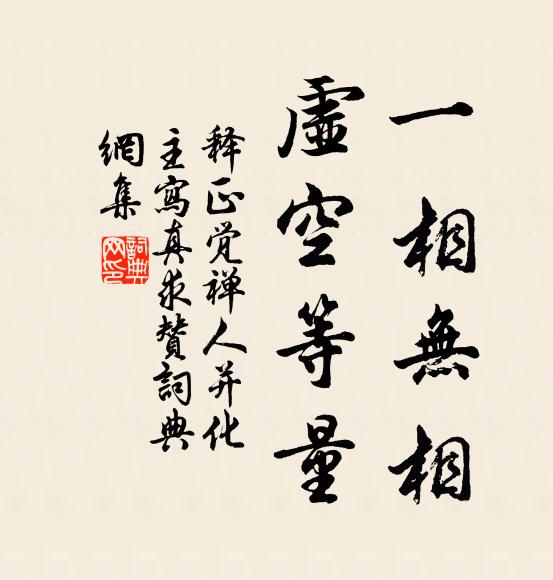 一相無相
虛空等量
释正觉禅人并化
主寫真求赞詞典
網集
詞典
网印